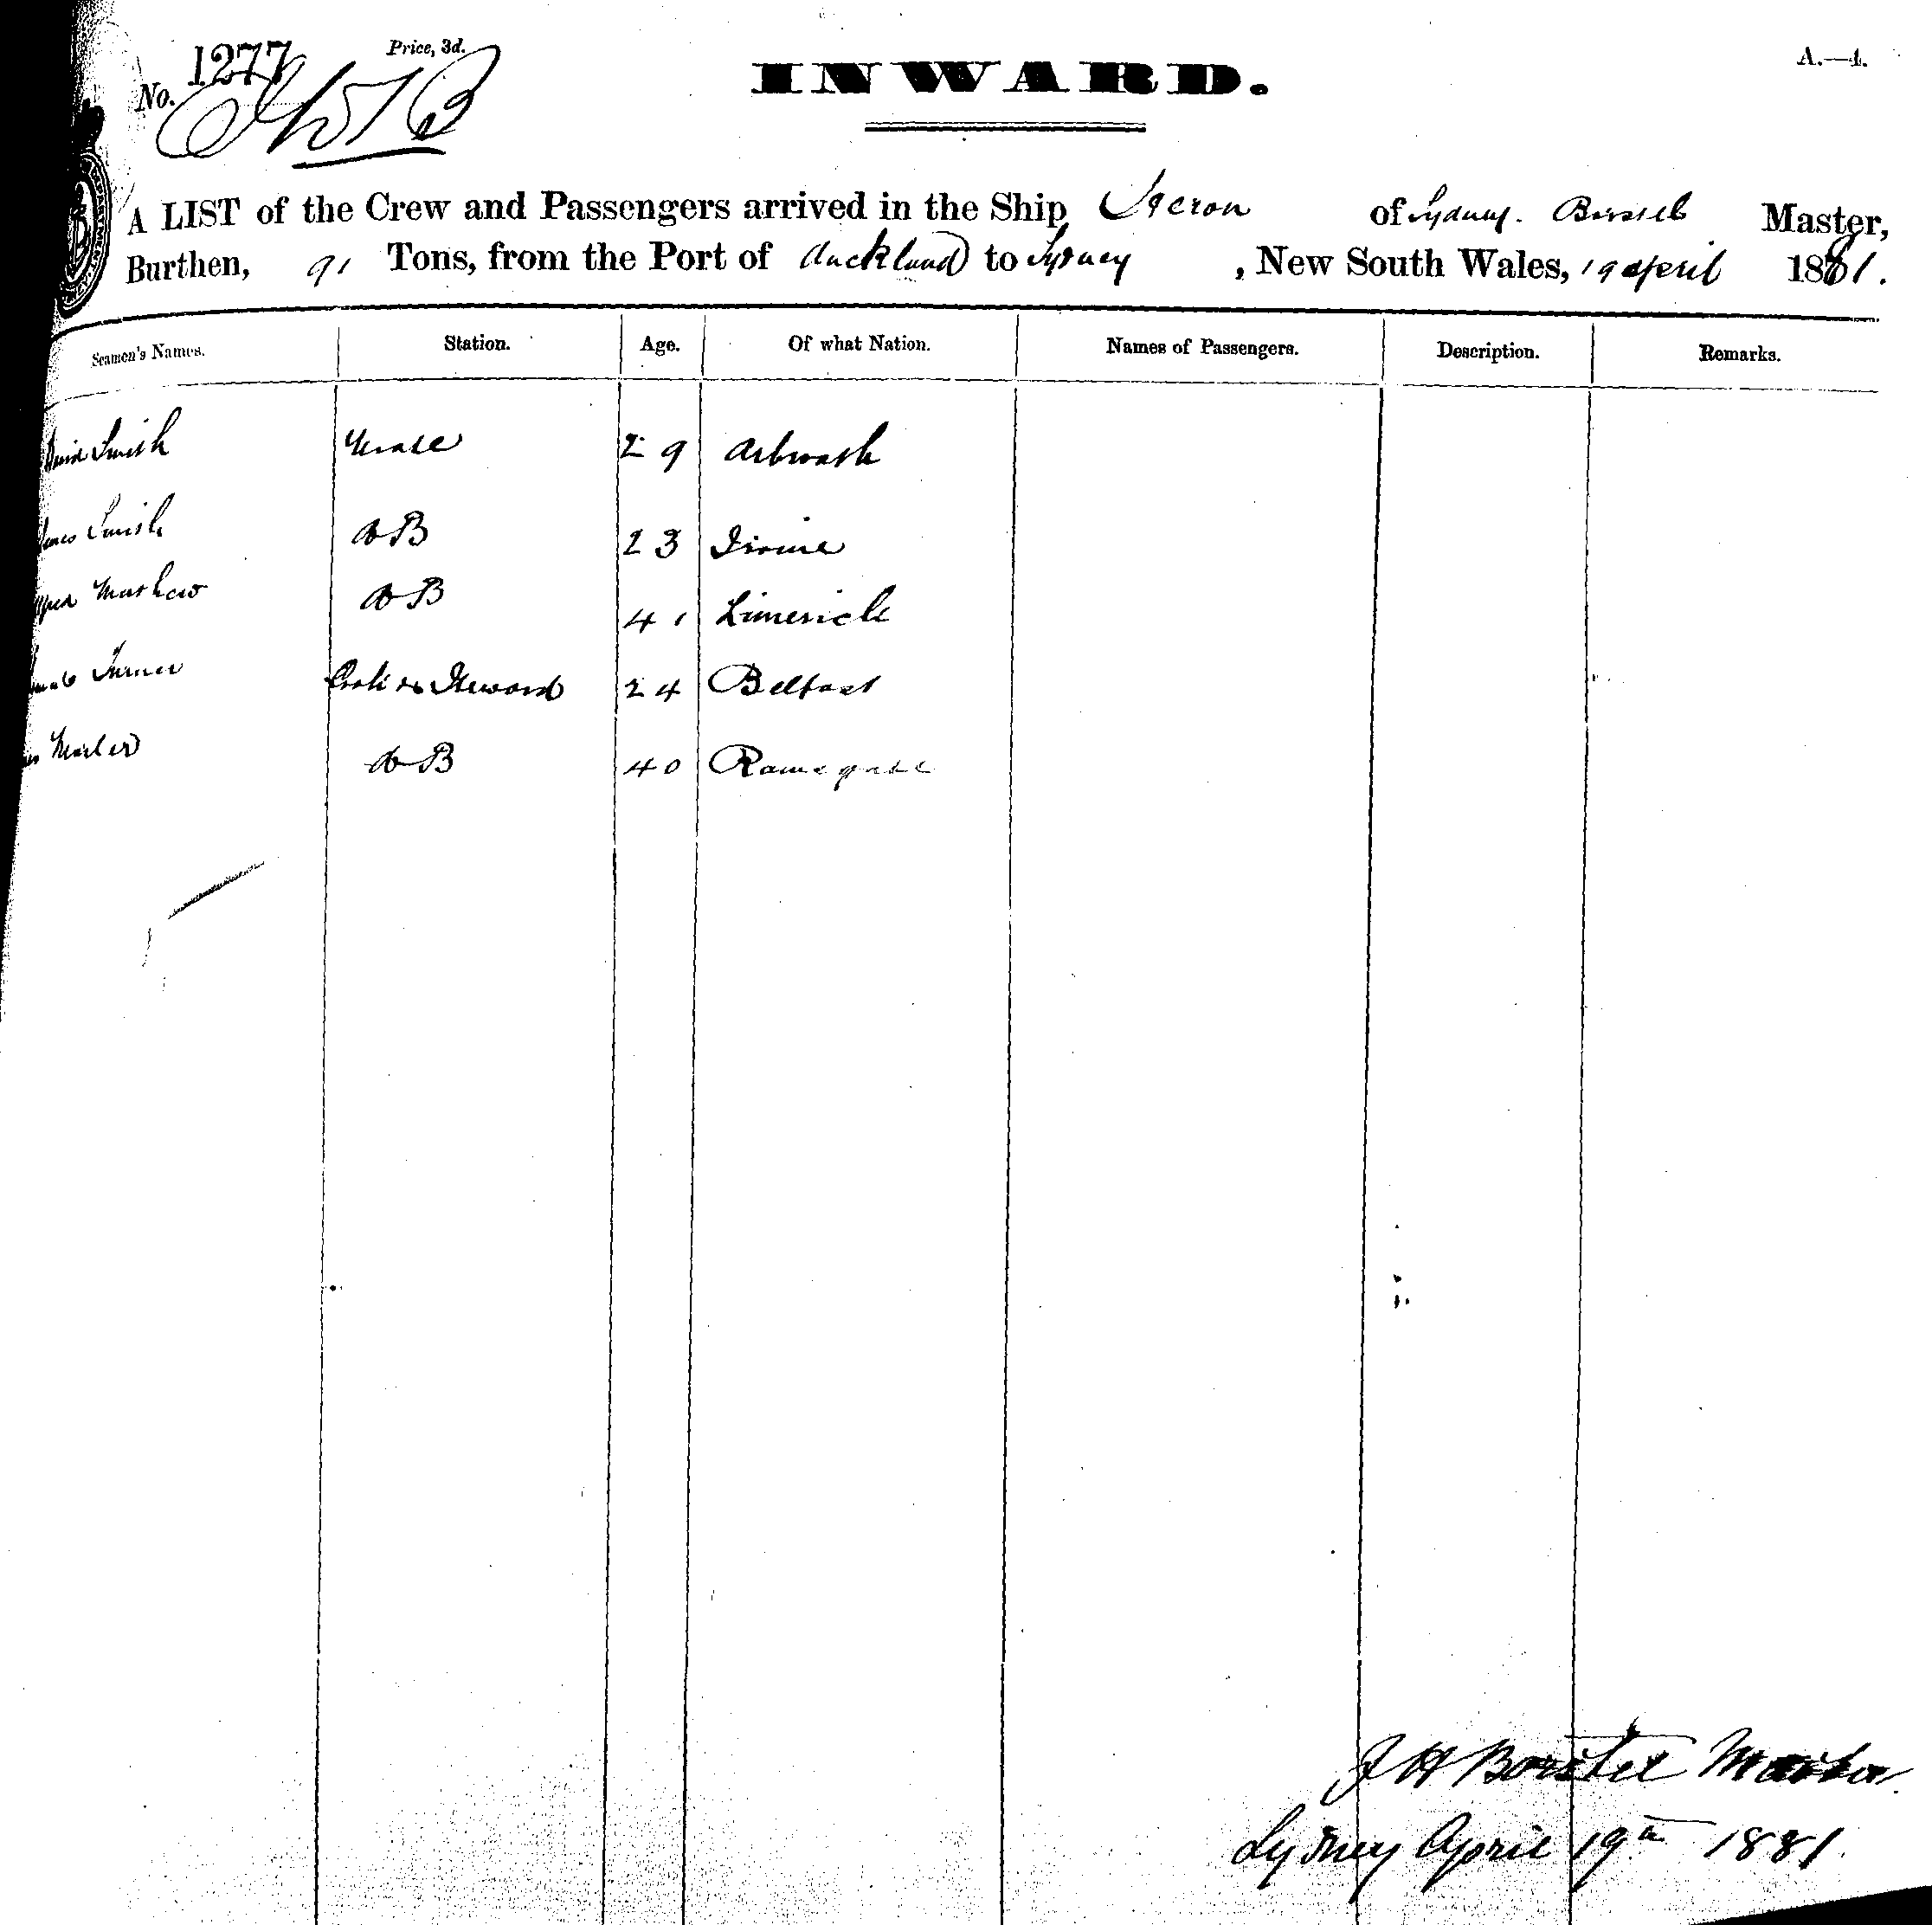 No. 1277
Price, 3d.
INWARD.
A.—4.
A LIST of the Crew and Passengers arrived in the Ship Acron of Sydney. Borstel Master,
Burthen, 91 Tons, from the Port of Auckland to Sydney, New South Wales, 19 April 1881.
Seamen's Names. Station. Age. Of what Nation. Names of Passengers. Description. Remarks.
David Smith Mate 29 Arbroath
James Smith AB 23 Irvine
Alfred Mathew AB 41 Limerick
Turner Cook & Steward 24 Belfast
AB 40 Ramsgate
J H Borstel Master
Sydney April 19th 1881.